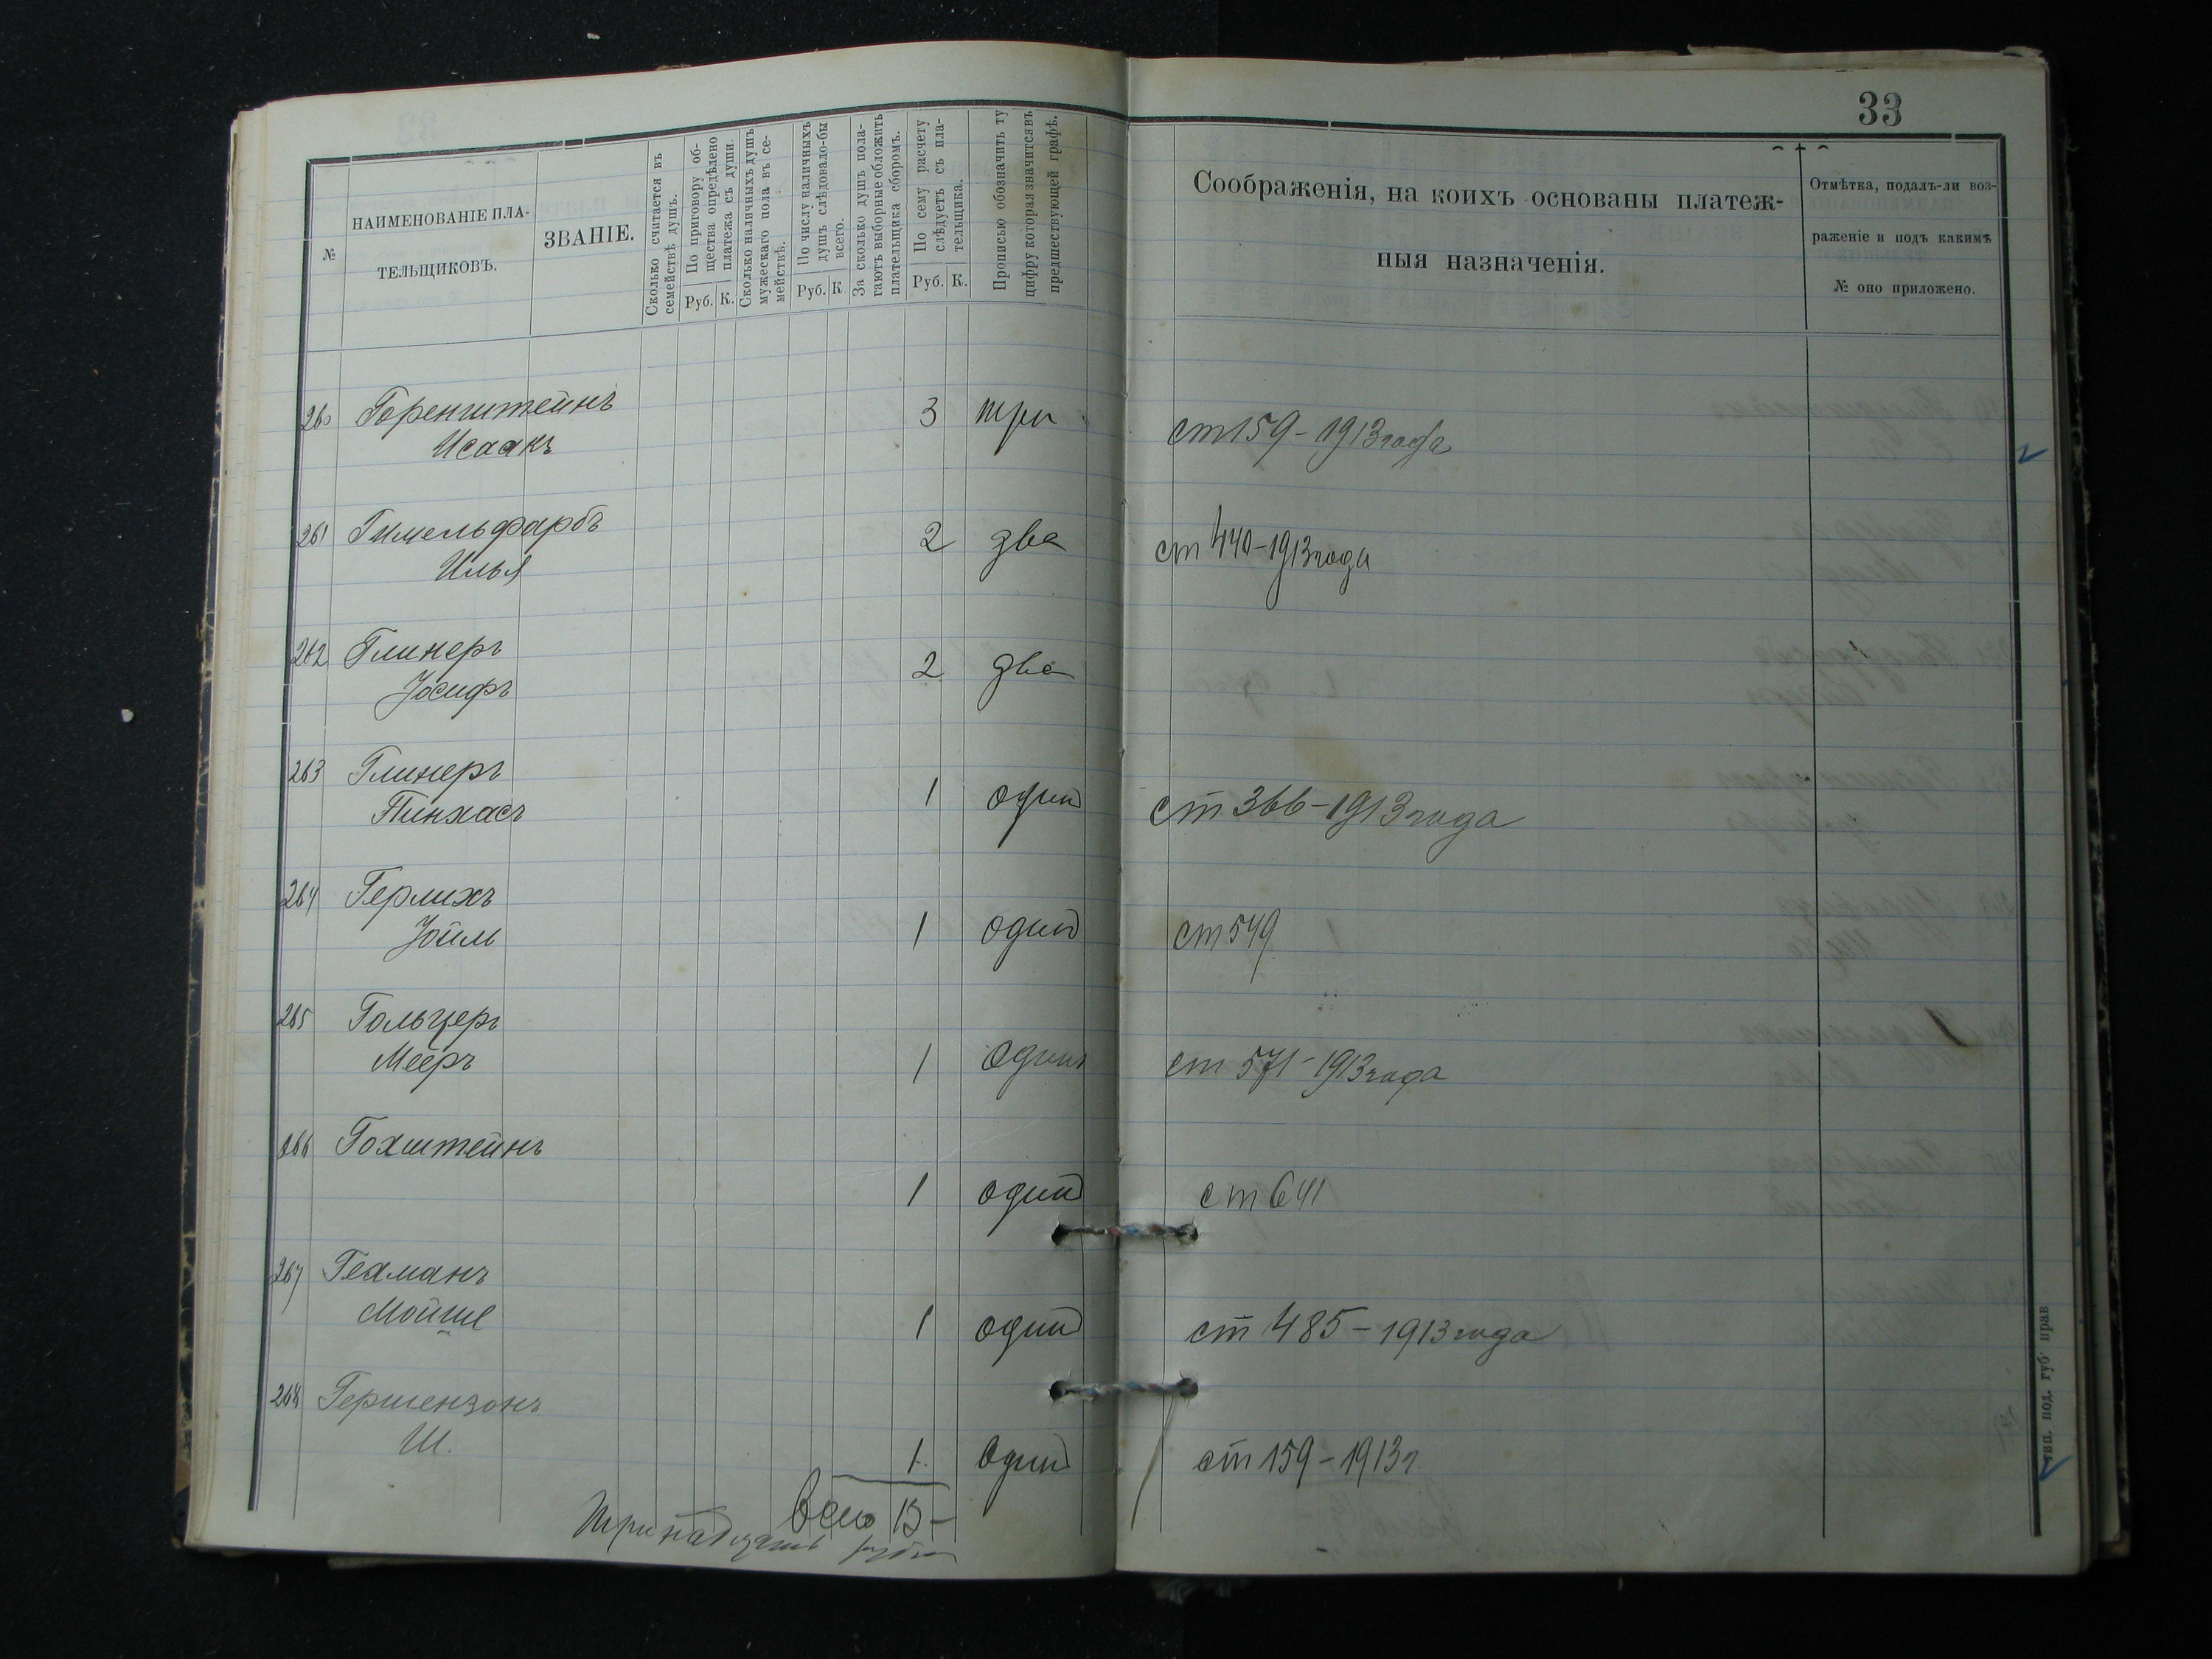 33
№
НАИМЕНОВАНІЕ ПЛА-
ТЕЛЬЩИКОВЪ.
ЗВАНІЕ.
Сколько считается въ
семействѣ душъ.
По приговору об-
щества опредѣлено
платежа съ души.
Руб. К.
Сколько наличныхъ душъ
мужескаго пола въ се-
мействѣ.
По числу наличныхъ
душъ слѣдовало-бы
всего.
Руб. К
За сколько душъ пола-
гаютъ выборные обложить
плательщика сборомъ.
По сему расчету
слѣдуетъ съ пла-
тельщика.
Руб. К.
Прописью обозначить ту
цифру которая значится въ
предшествующей графѣ.
Соображенія, на коихъ основаны платеж-
ныя назначенія.
Отмѣтка, подалъ-ли воз-
раженіе и подъ какимъ
№ оно приложено.
260 Горенштейнъ 3 три ст 159 - 1913 года
Исаакъ
261 Гимельфарбъ 2 два ст 440 - 1913 года
Илья
262 Глинеръ 2 два
Іосифъ
263 Глинеръ
Пинхасъ 1 один ст 366 - 1913 года
264 Герлихъ
Іойль 1 один ст 549
265 Гольцеръ
Мееръ 1 один ст 571 - 1913 года
266 Гохштейнъ
1 один ст 641
267 Гехманъ
Мойше 1 один ст 485 - 1913 года
268 Гершензонъ
Ш. 1. один ст 159 - 1913 г
Всего 13 -
Тринадцать рубл
тип. под. губ. прав